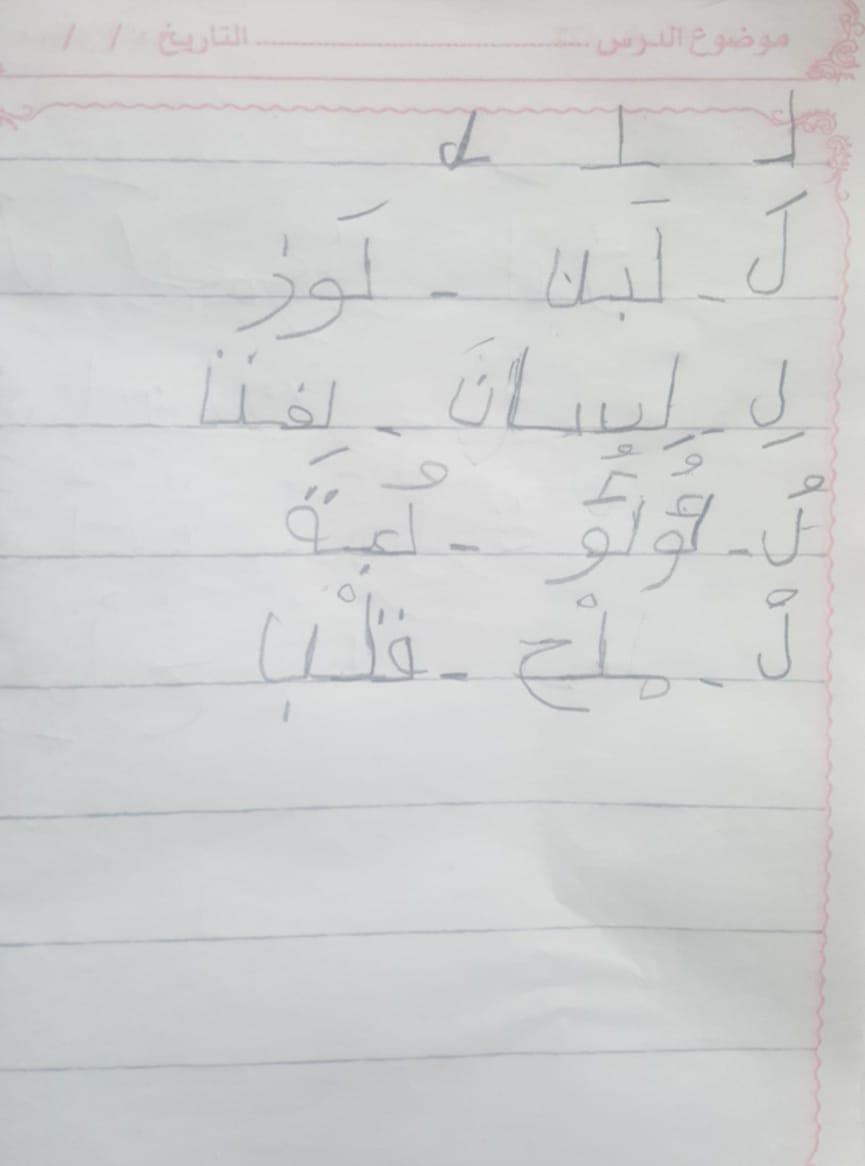 موضوع الدرس ............ التاريخ / /
لـ ـلـ
لَ - لَبن - لَوز
لِ - لِسان - لِفتنا
لُ - لُؤلُؤ - لُعبَة
لْ - ملْح - قلْب